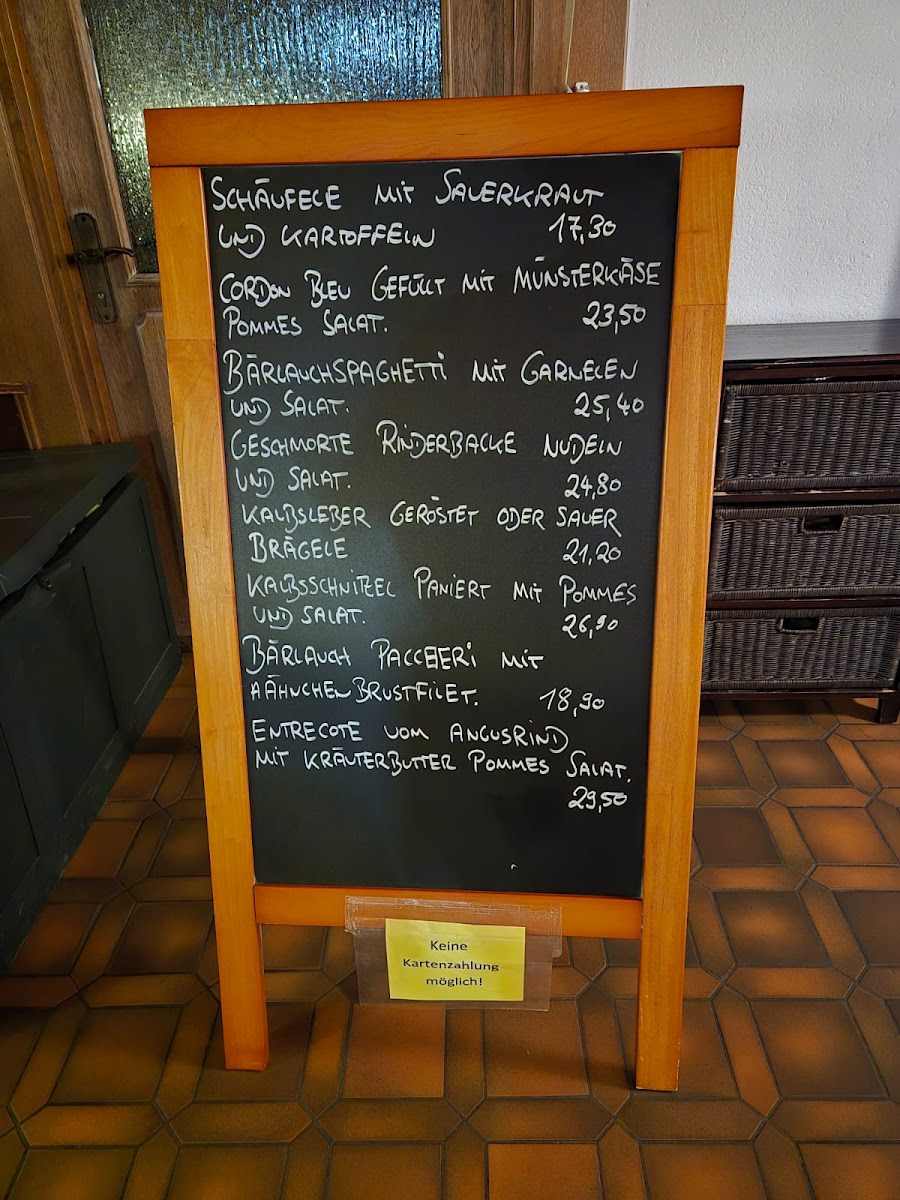 SCHÄUFELE MIT SAUERKRAUT
UND KARTOFFELN 17,30
CORDON BLEU GEFÜLLT MIT MÜNSTERKÄSE
POMMES SALAT. 23,50
BÄRLAUCHSPAGHETTI MIT GARNELEN
UND SALAT. 25,40
GESCHMORTE RINDERBACKE NUDELN
UND SALAT. 24,80
KALBSLEBER GERÖSTET ODER SAUER
BRÄGELE 21,20
KALBSSCHNITZEL PANIERT MIT POMMES
UND SALAT. 26,90
BÄRLAUCH PACCHERI MIT
HÄHNCHENBRUSTFILET. 18,90
ENTRECOTE VOM ANGUSRIND
MIT KRÄUTERBUTTER POMMES SALAT.
29,50
Keine
Kartenzahlung
möglich!